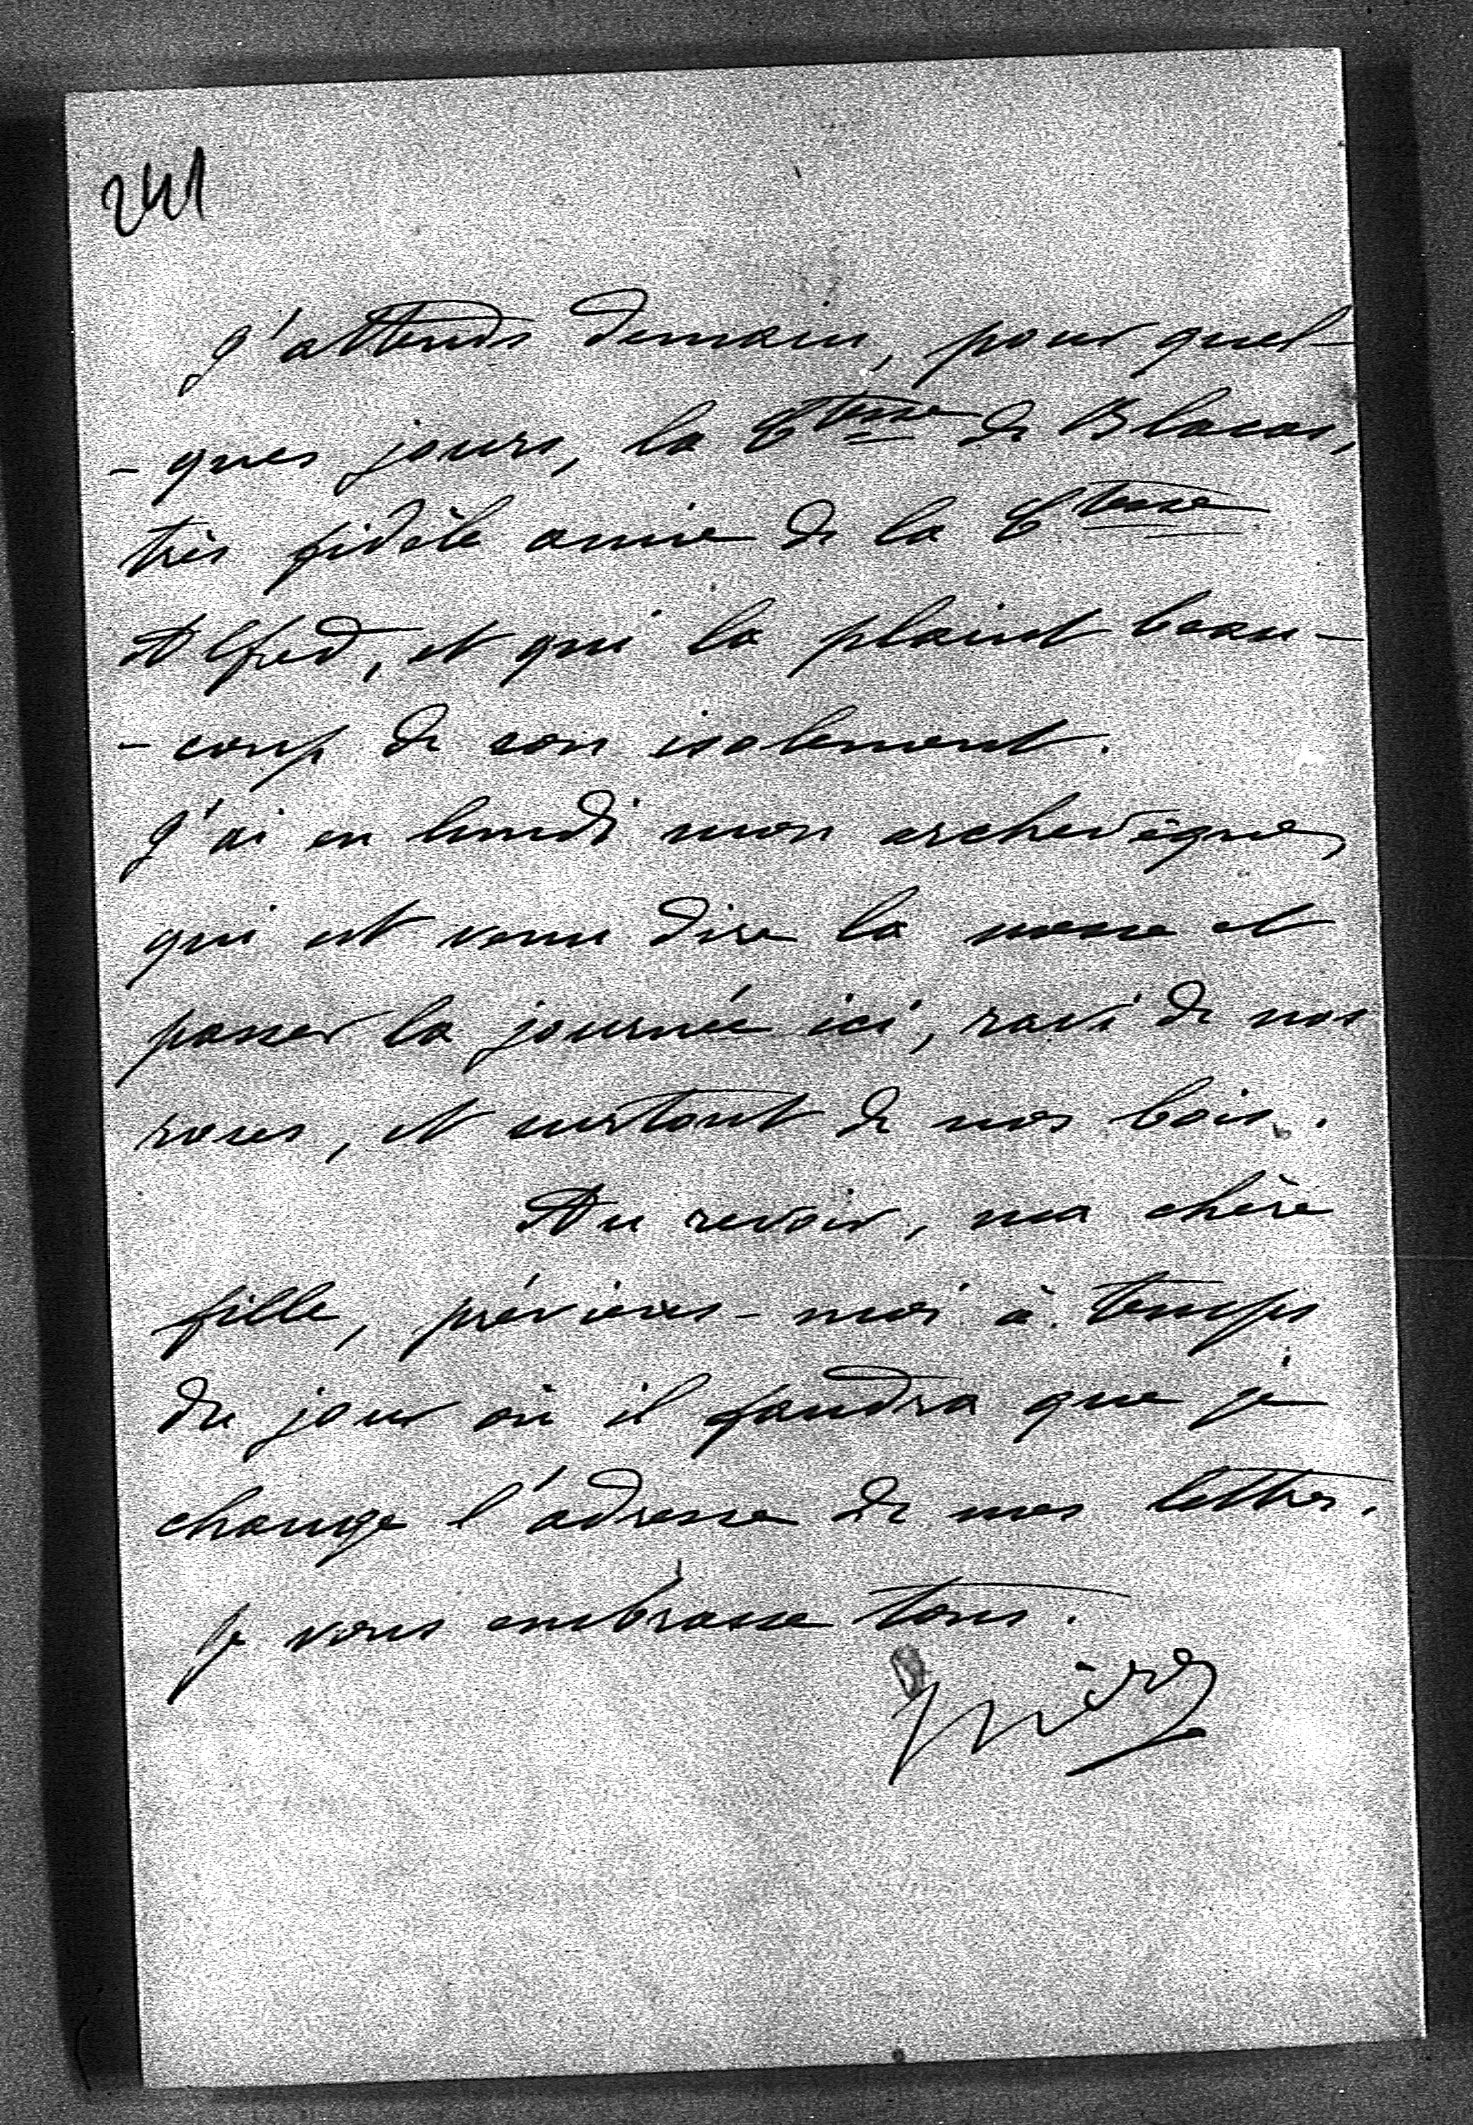 241
J'attends demain, pour quel-
-ques jours, la Ctesse de Blacas,
très fidèle amie de la Ctesse
Alfred, et qui la plaint beau-
-coup de son isolement.
J'ai eu lundi mon archevêque,
qui est venu dire la messe et
passer la journée ici, ravi de nos
roses, et surtout de nos bois.
Au revoir, ma chère
fille, préviens-moi à temps
du jour où il faudra que je
change l'adresse de mes lettres.
Je vous embrasse tous.